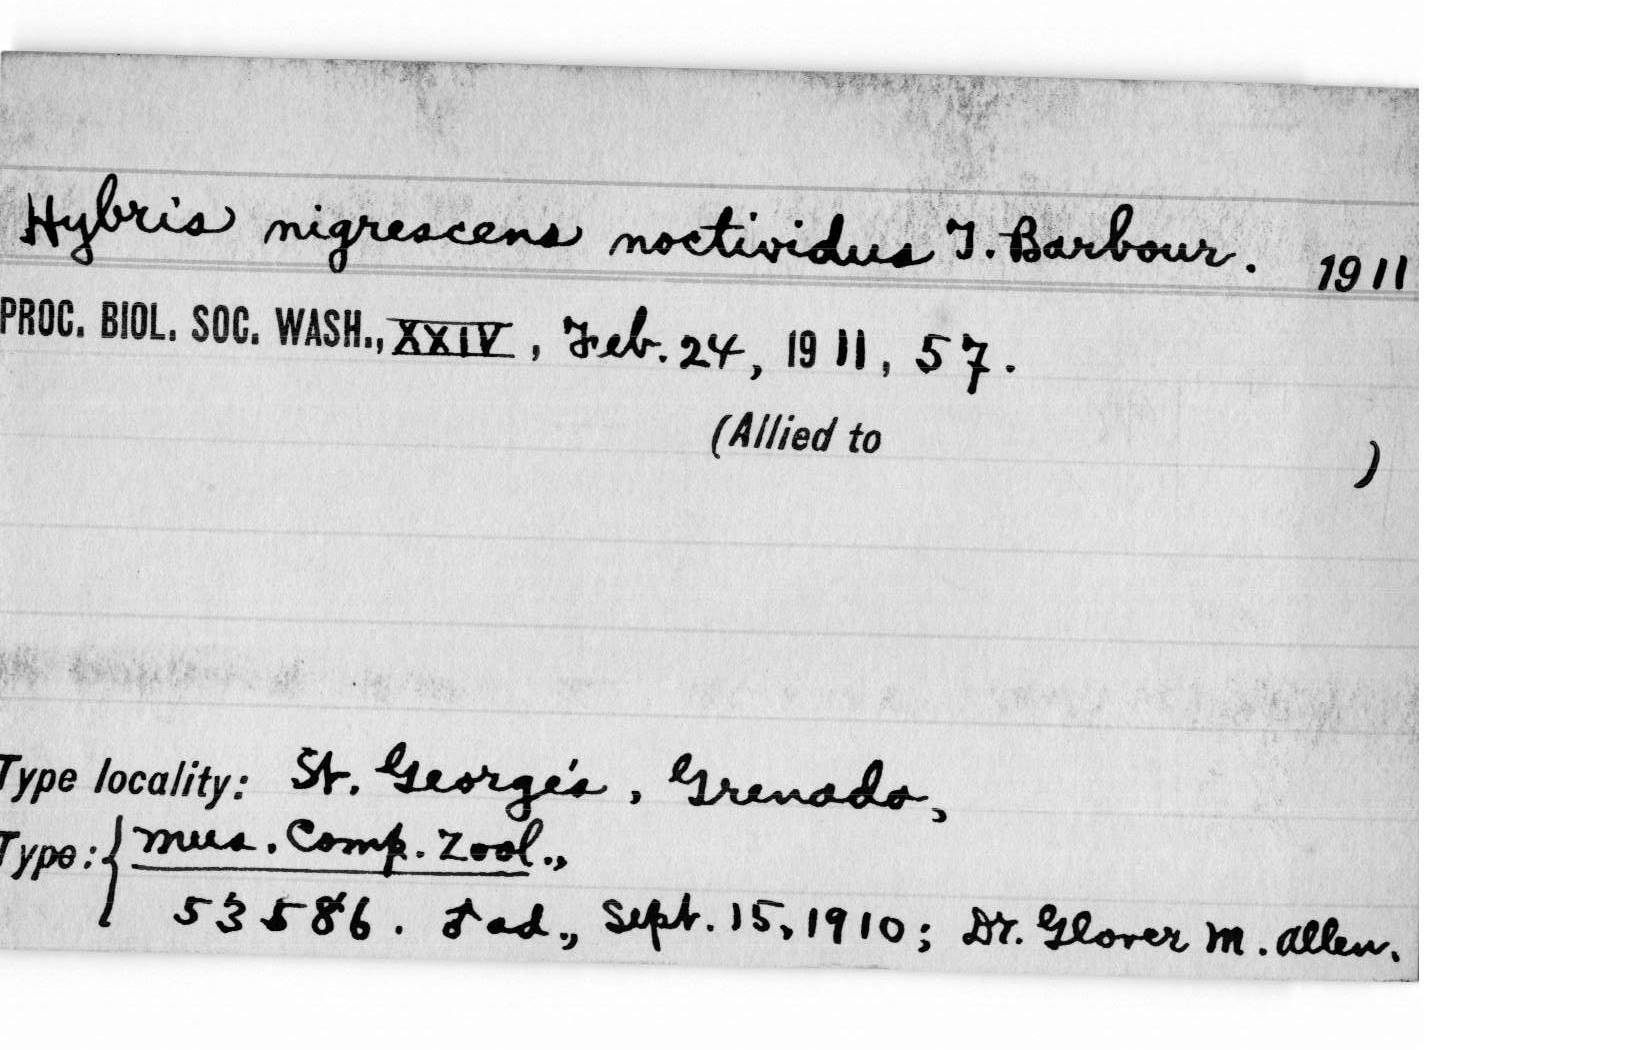 Hybris nigrescens noctividus T. Barbour. 1911
PROC. BIOL. SOC. WASH., XXIV, Feb. 24, 1911, 57.
(Allied to )
Type locality: St. George's, Grenada,
Type: { Mus. Comp. Zool.,
53586. ♂ ad., Sept. 15, 1910; Dr. Glover M. Allen.